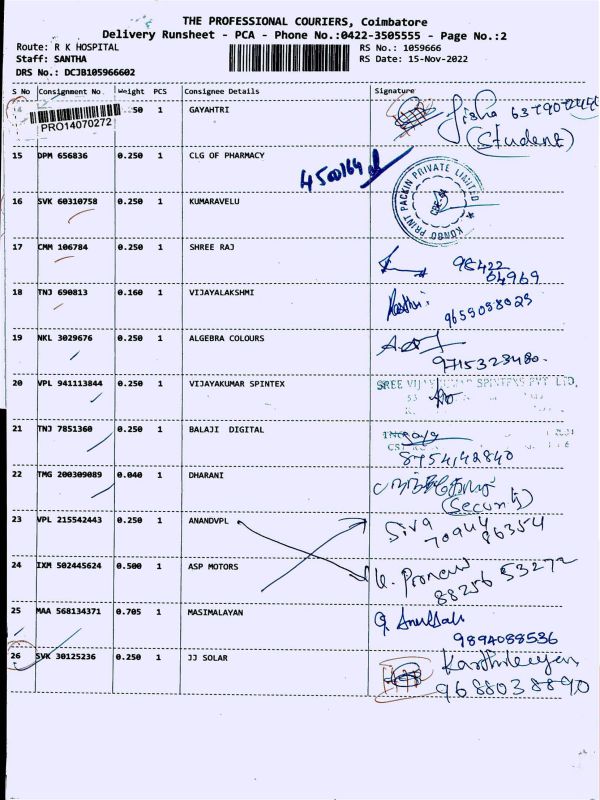 THE PROFESSIONAL COURIERS, Coimbatore
Delivery Runsheet - PCA - Phone No.:0422-3505555 - Page No.:2
Route: R K HOSPITAL RS No.: 1059666
Staff: SANTHA RS Date: 15-Nov-2022
DRS No.: DCJB105966602
S No Consignment No. Weight PCS Consignee Details Signature
50 1 GAYAHTRI Jisha
PRO14070272 (Student)
15 DPM 656836 0.250 1 CLG OF PHARMACY
4500164
KONGO PRINT PACKIN PRIVATE LIMITED
16 SVK 60310758 0.250 1 KUMARAVELU
17 CMM 106784 0.250 1 SHREE RAJ 98422
04969
18 TNJ 690813 0.160 1 VIJAYALAKSHMI
9659098023
19 NKL 3029676 0.250 1 ALGEBRA COLOURS
9715323480.
20 VPL 941113844 0.250 1 VIJAYAKUMAR SPINTEX SREE VIJAYKUMAR SPINTEXS PVT LTD,
21 TNJ 7851360 0.250 1 BALAJI DIGITAL
8754142840
22 TMG 200309089 0.040 1 DHARANI
(Security)
23 VPL 215542443 0.250 1 ANANDVPL Siva
70944 86354
24 IXM 502445624 0.500 1 ASP MOTORS
88256 53272
25 MAA 568134371 0.705 1 MASIMALAYAN
9894088536
26 SVK 30125236 0.250 1 JJ SOLAR Karthikeyan
9688038890